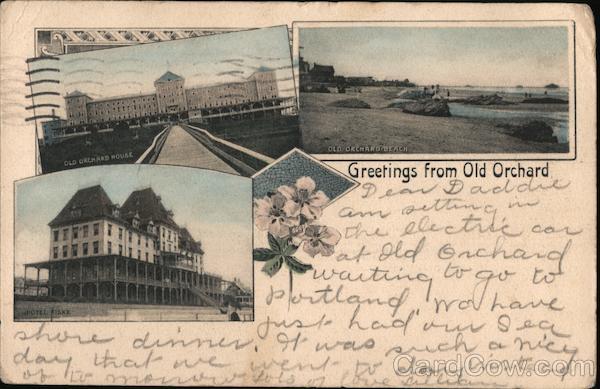 OLD ORCHARD HOUSE
OLD ORCHARD BEACH
HOTEL FISKE
Greetings from Old Orchard
Dear Daddie
am setting in
the electric car
at Old Orchard
waiting to go to
Portland. We have
just had our Sea
shore dinner. It was such a nicy
day that we went to day
of to morrow lots of love
CardCow.com